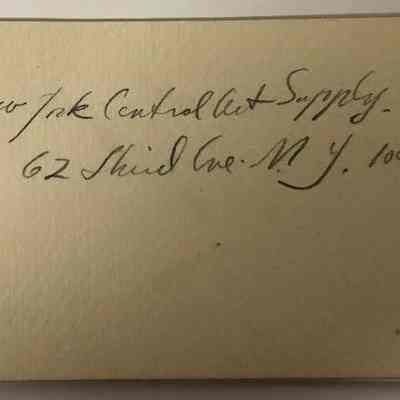 w York Central Art Supply.
62 Third Ave. N. Y. 100